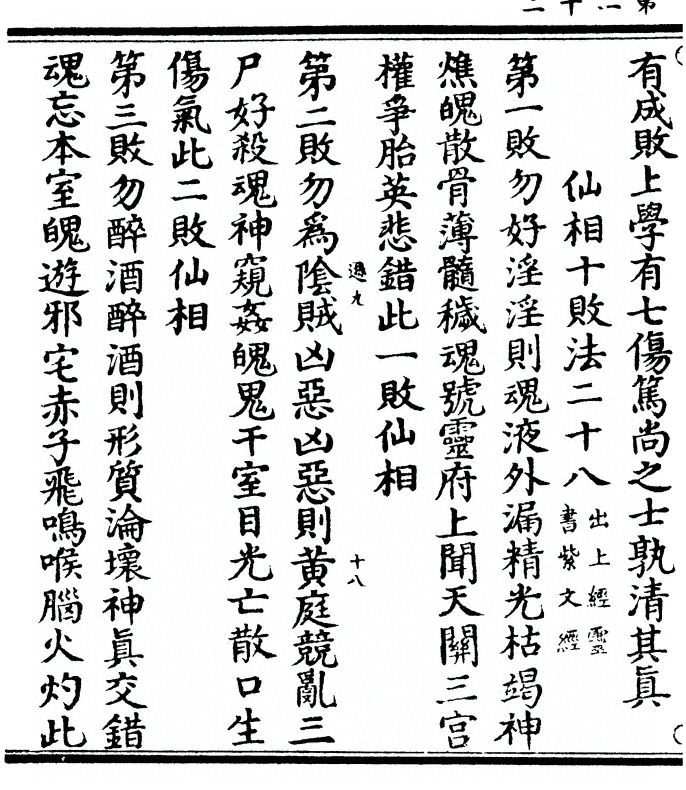 有成敗上學有七傷篤尚之士孰清其眞
仙相十敗法二十八出上經靈書紫文經
第一敗勿好淫淫則魂液外漏精光枯竭神
燋魄散骨薄髓穢魂號靈府上聞天關三宫
權爭胎英悲錯此一敗仙相
遜九
十八
第二敗勿爲陰賊凶惡凶惡則黃庭競亂三
尸好殺魂神窺姦魄鬼干室目光亡散口生
傷氣此二敗仙相
第三敗勿醉酒醉酒則形質淪壞神眞交錯
魂忘本室魄遊邪宅赤子飛鳴喉腦火灼此